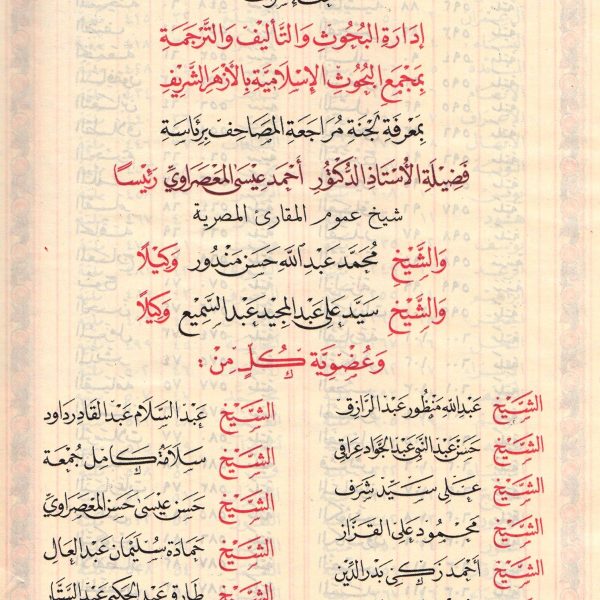 إِدَارَةِ البُحُوثِ وَالتَّأْلِيفِ وَالتَّرْجَمَةِ
بِمَجْمَعِ البُحُوثِ الإِسْلَامِيَّةِ بِالأَزْهَرِ الشَّرِيفِ
بِمَعْرِفَةِ لَجْنَةِ مُرَاجَعَةِ المَصَاحِفِ بِرِئَاسَةِ
فَضِيلَةِ الأُسْتَاذِ الدُّكْتُورِ أَحْمَد عِيسَى المَعْصَرَاوِي رَئِيسًا
شيخ عموم المقارئ المصرية
وَالشَّيْخِ مُحَمَّد عَبْد اللَّه حَسَن مَنْدُور وَكِيلًا
وَالشَّيْخِ سَيِّد عَلِي عَبْد المَجِيد عَبْد السَّمِيع وَكِيلًا
وَعُضْوِيَّةِ كُلٍّ مِنْ :
الشَّيْخ عَبْد اللَّه مَنْظُور عَبْد الرَّازِق
الشَّيْخ حَسَن عَبْد النَّبِي عَبْد الجَوَاد عِرَاقِي
الشَّيْخ عَلِي سَيِّد شَرَف
الشَّيْخ مَحْمُود عَلِي القَزَّاز
الشَّيْخ أَحْمَد زَكِي بَدْر الدِّين
الشَّيْخ عَبْد السَّلَام عَبْد القَادِر دَاوُد
الشَّيْخ سَلَامَة كَامِل جُمْعَة
الشَّيْخ حَسَن عِيسَى حَسَن المَعْصَرَاوِي
الشَّيْخ حَمَادَة سُلَيْمَان عَبْد العَال
الشَّيْخ طَارِق عَبْد الحَكِيم عَبْد السَّتَّار